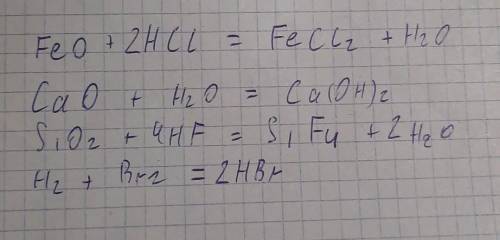 FeO + 2HCl = FeCl2 + H2O
CaO + H2O = Ca(OH)2
SiO2 + 4HF = SiF4 + 2H2O
H2 + Br2 = 2HBr